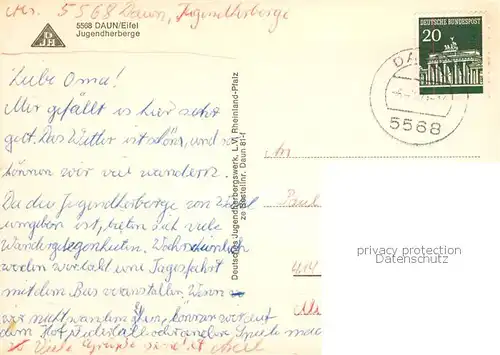 Abs. 5568 Daun, Jugendherberge
DJH
5568 DAUN/Eifel
Jugendherberge
DEUTSCHE BUNDESPOST
20
5568
Liebe Oma!
Mir gefällt es hier sehr
gut. Das Wetter ist schön, und so
können wir viel wandern.
Da die Jugendherberge von Wald
umgeben ist, bieten sich viele
Wandergelegenheiten. Wahrscheinlich
werden wir bald eine Tagesfahrt
mit dem Bus veranstalten. Wenn
wir nicht wandern können wir auf
dem Hof
Viele Grüße
Deutsches Jugendherbergswerk, L.V. Rheinland-Pfalz
Bestellnr. Daun 81-f
An
Paul
414
privacy protection
Datenschutz